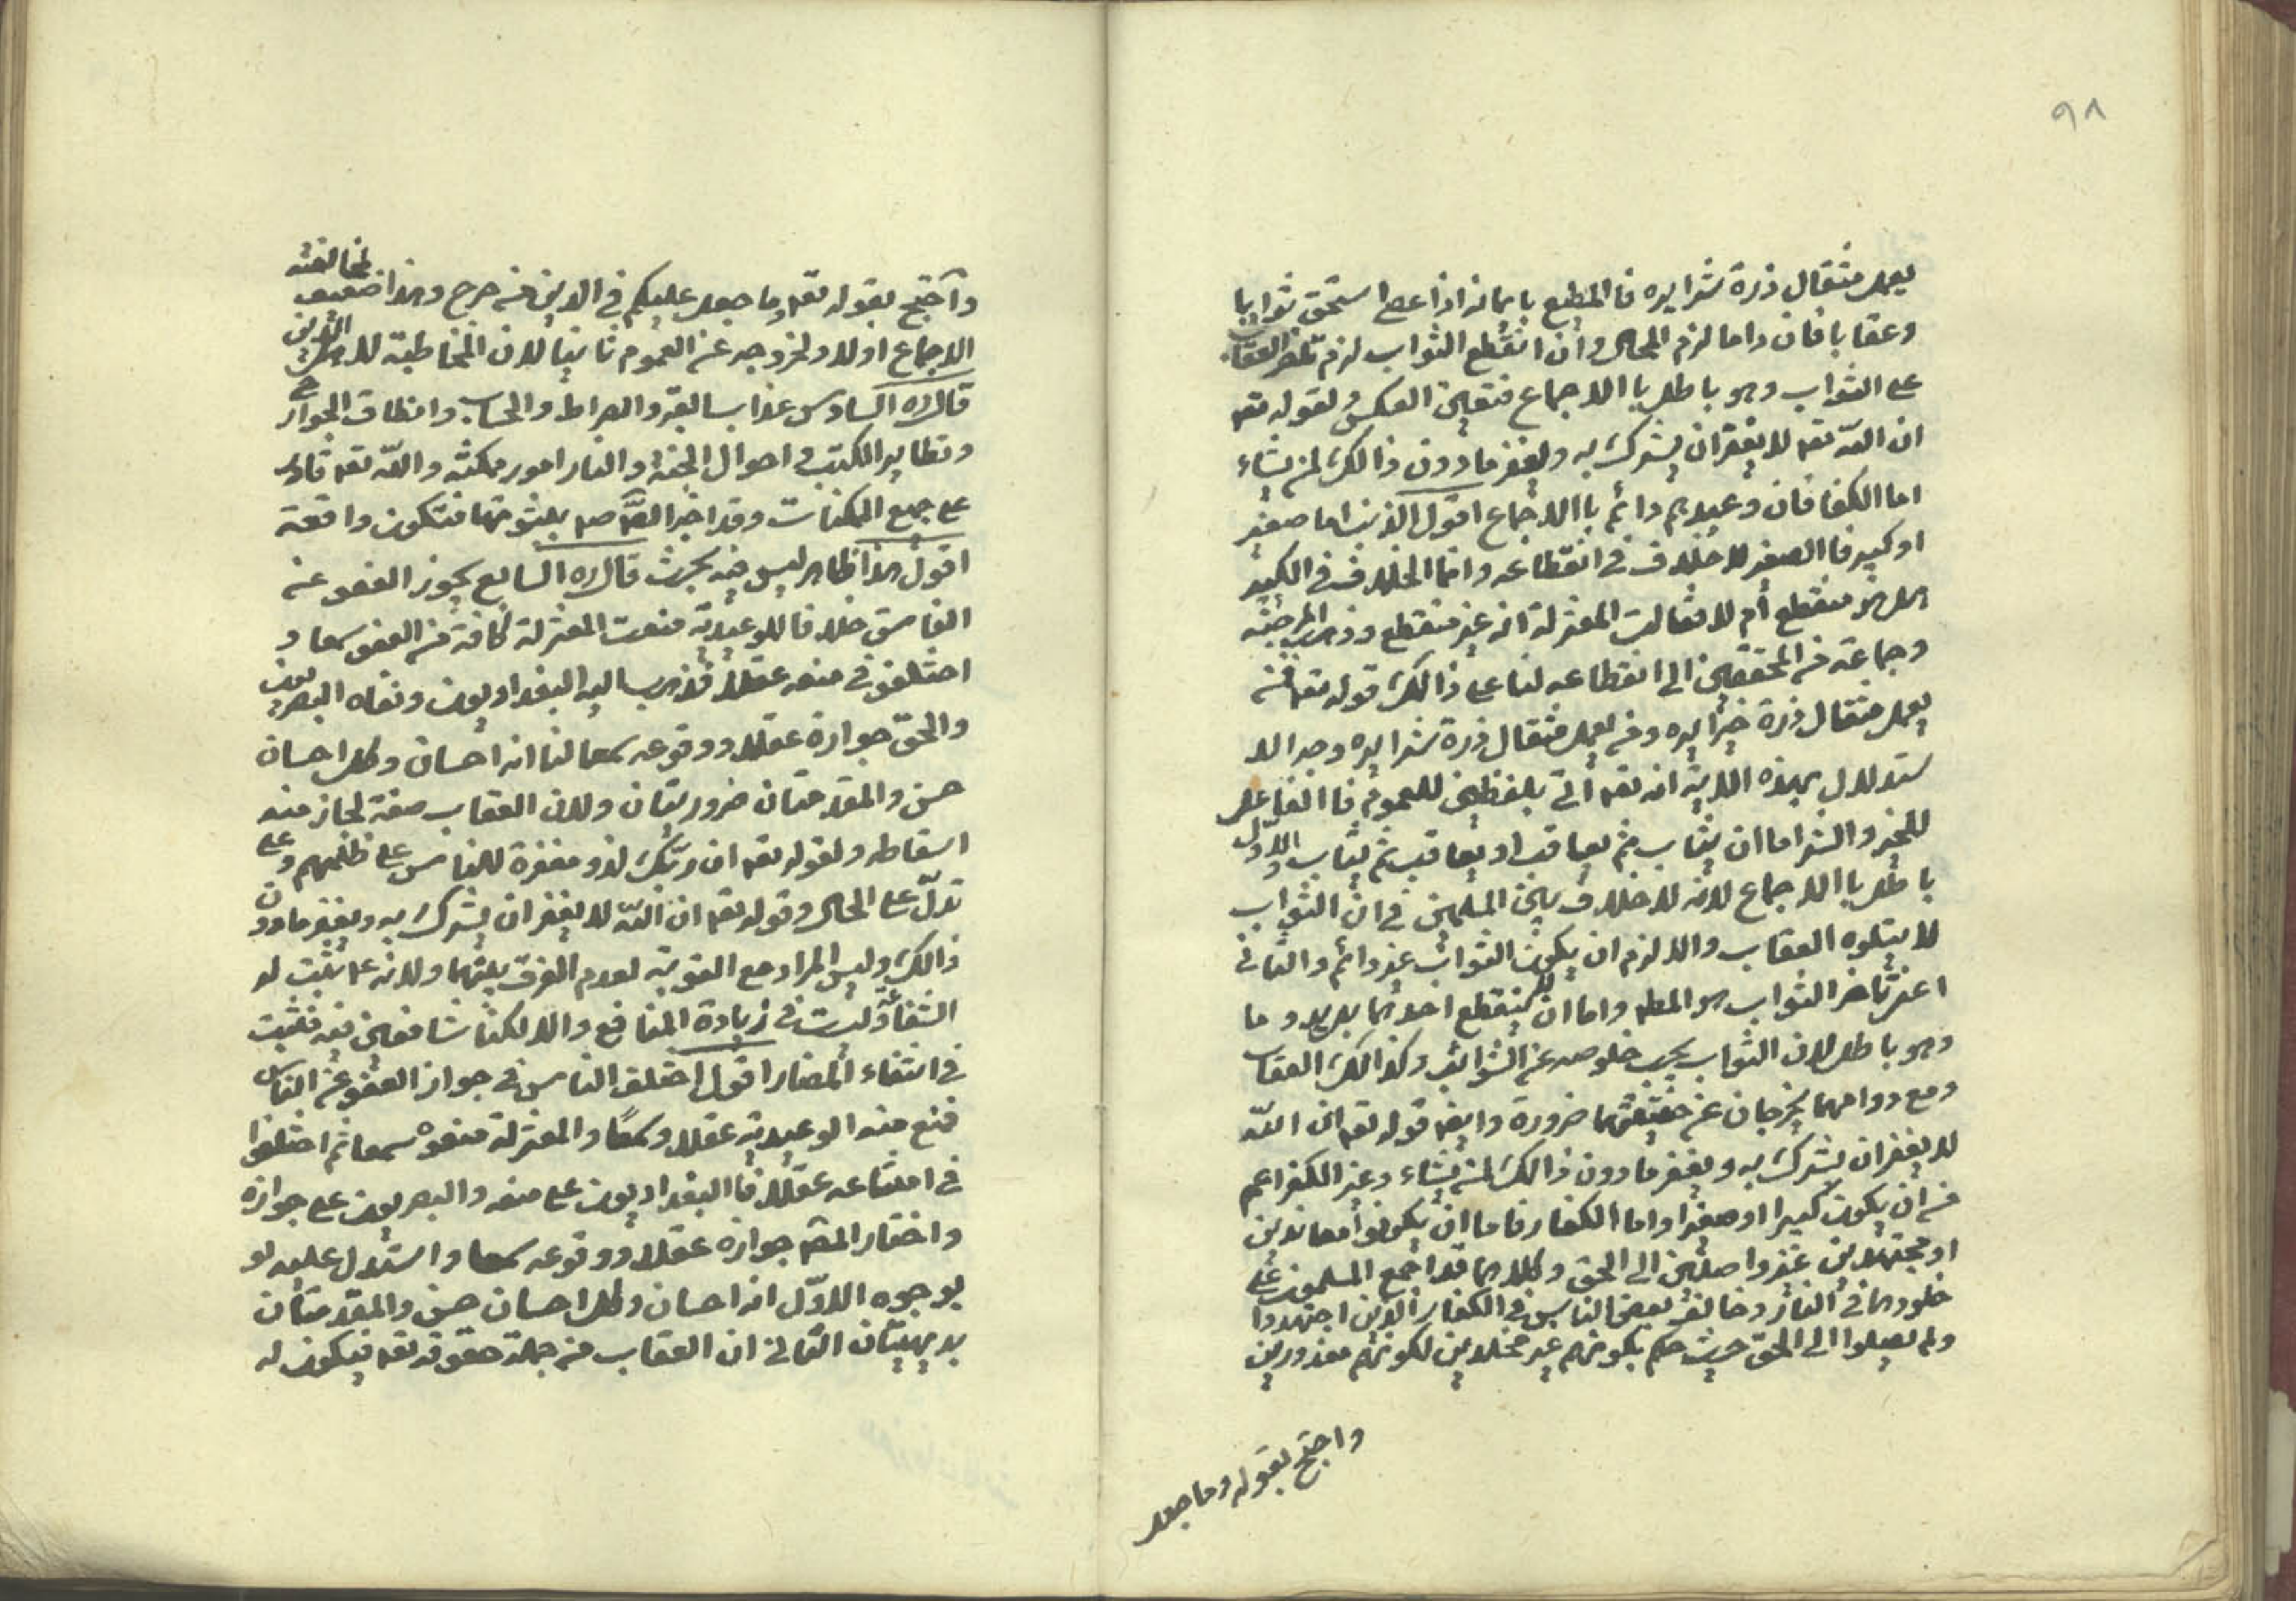 ٩٨
يعمل مثقال ذرة شرا يره فالمطيع بايمانه اذا عصى استحق ثوابا
وعقابا فان داما لزم المحال وان انقطع الثواب لزم العقاب
على الثواب وهو باطل بالاجماع فتعين العكس ولقوله تعه
ان الله تعه لا يغفر ان يشرك به ويغفر مادون ذالك لمن يشاء
اما الكفا فان وعيدهم دائم باالاجماع اقول الذنب اما صغير
او كبير فا الصغير لا خلاف في انقطاعه وانما الخلاف في الكبير
هل هو منقطع أم لا فقالت المعتزلة انه غير منقطع وذهب المرجئه
وجماعة من المحققين الى انقطاعه لنا على ذالك قوله تعه فمن
يعمل مثقال ذرة خيرا يره ومن يعمل مثقال ذرة شرا يره وجه الا
ستدلال بهذه الاية انه تعه اتى بلفظين للعموم فا الفاعل
للخير والشر اما ان يثاب ثم يعاقب او يعاقب ثم يثاب والاول
باطل باالاجماع لانه لا خلاف بين المسلمين في ان الثواب
لا يتلوه العقاب والا لزم ان يكون الثواب غير دائم والثاني
اعنى تاخر الثواب هو المطه واما ان لا ينقطع احدهما بل يدوما
وهو باطل لان الثواب يجب خلوصه عن الشوائب وكذالك العقاب
ومع دوامهما يخرجان عن حقيقتهما ضرورة وايضه قوله تعه ان الله
لا يغفر ان يشرك به ويغفر مادون ذالك لمن يشاء وغير الكفر اعم
من ان يكون كبيرا او صغيرا واما الكفار فاما ان يكونوا معاندين
او مجتهدين غير واصلين الى الحق وكلاهما قد اجمع المسلمون على
خلودهما في النار وخالف بعض الناس في الكفار الذين اجتهدوا
ولم يصلوا الى الحق حيث حكم بكونهم غير مخلدين لكونهم معذورين
واحتج بقوله وما جعل
واحتج بقوله تعه وما جعل عليكم في الدين من حرج وهذا ضعيف لمخالفته
الاجماع اولا ولخروجه عن العموم ثانيا لان المخاطبة لاهل الدين
قال ره السادس عذاب القبر والصراط والحساب وانطاق الجوارح
وتطاير الكتب و احوال الجنة والنار امور ممكنة والله تعه قادر
على جميع الممكنات وقد اخبر الصه صم بثبوتها فتكون واقعة
اقول هذا ظاهر ليس فيه بحث قال ره السابع يجوز العفو عن
الفاسق خلافا للوعيدية منعت المعتزلة كافة من العفو سمعا و
اختلفو في منعه عقلا فذهب اليه البغداديون ونفاه البصريون
والحق جوازه عقلا ووقوعه سمعا لنا انه احسان وكل احسان
حسن والمقدمتان ضروريتان ولان العقاب صفة لجاز منه
اسقاطه ولقوله تعه ان ربك لذو مغفرة للناس على ظلمهم وعلى
تدل على الحال وقوله تعه ان الله لا يغفر ان يشرك به ويغفر مادون
ذالك وليس المراد مع التوبة لعدم الفرق بينهما ولانه عم تثبت له
الشفاعة ليست في زيادة المنافع والا لكنا شافعين فيه فتثبت
في انتفاء المضار اقول اختلق الناس في جواز العفو عن الفاسق
فمنع منه الوعيدية عقلا وسمعا والمعتزلة منعوه سمعا ثم اختلفوا
في امتناعه عقلا فا البغداديون على منعه والبصريون على جوازه
واختار المصه جوازه عقلا ووقوعه سمعا واستدل عليه لو
بوجوه الاول انه احسان وكل احسان حسن والمقدمتان
بديهيتان الثاني ان العقاب من جملة حقوقه تعه فيكون له